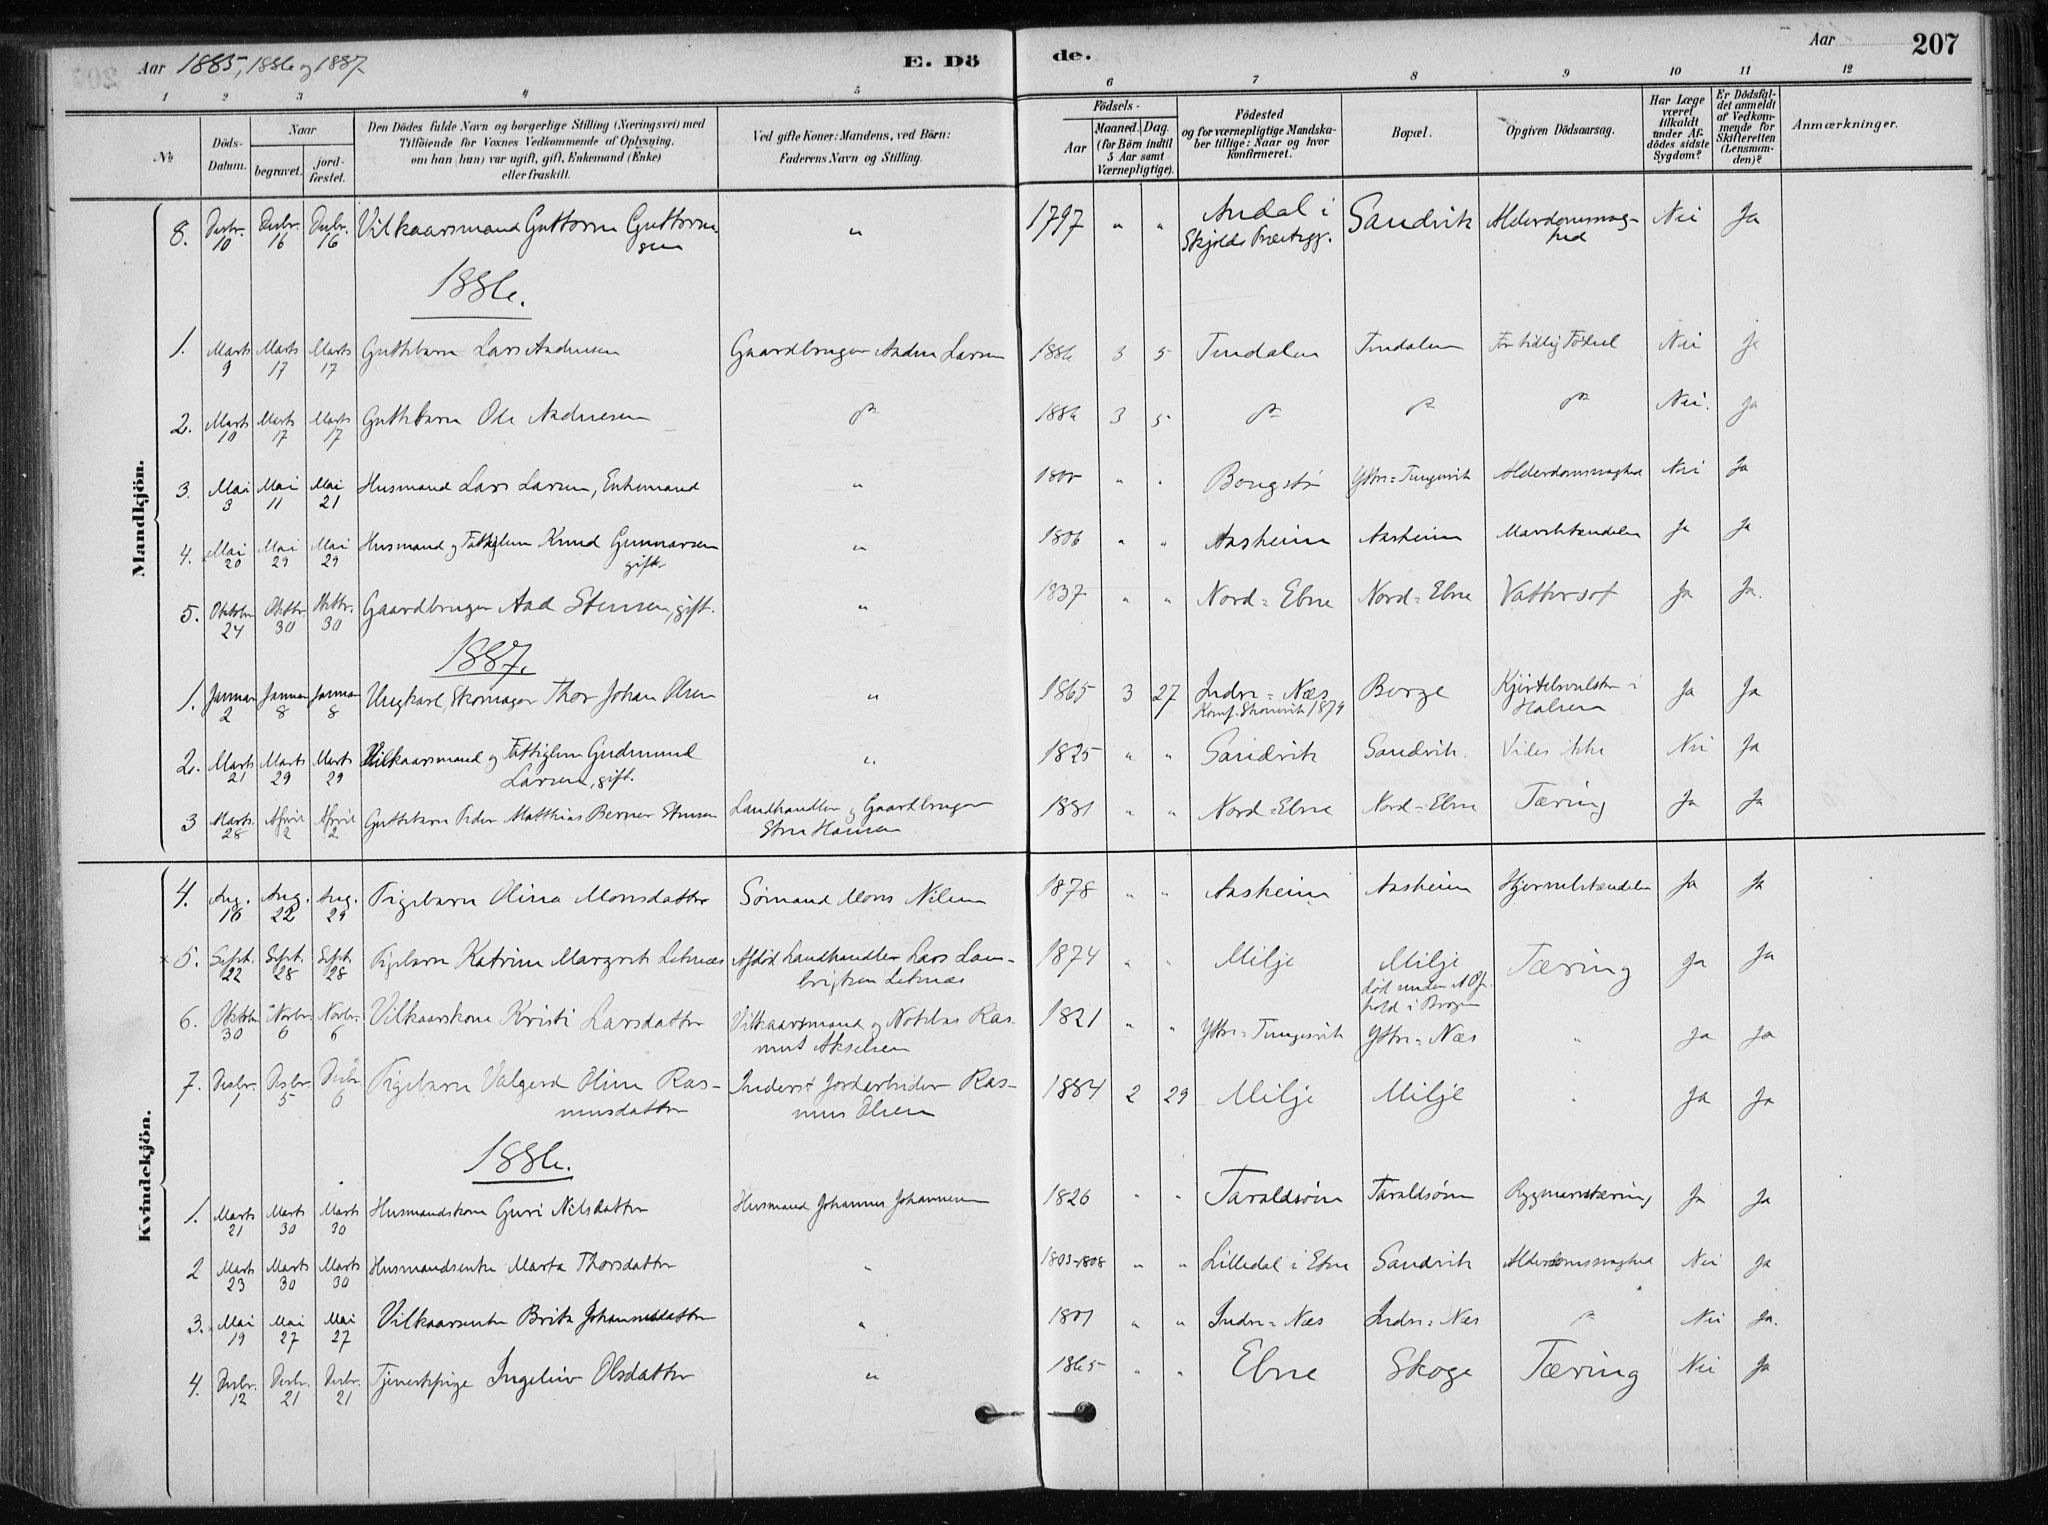 Aar 1885, 1886 og 1887. E. Dö
de. Aar 207
1 2 3 4 5
6 7 8 9 10 11 12
№ Döds-Datum. Naar begravet. jordfæstet. Den Dödes fulde Navn og borgerlige Stilling (Næringsvei) med Tilföiende for Voxnes Vedkommende af Oplysning, om han (hun) var ugift, gift, Enkemand (Enke) eller fraskilt. Ved gifte Koner: Mandens, ved Börn: Faderens Navn og Stilling.
Födsels- Aar Maaned. Dag. (for Børn indtil 5 Aar samt Værnepligtige). Födested og for værnepligtige Mandskaber tillige: Naar og hvor Konfirmeret. Bopæl. Opgiven Dödsaarsag. Har Læge været tilkaldt under Afdödes sidste Sygdom? Er Dödsfaldet anmeldt af Vedkommende for Skifteretten (Lensmanden)? Anmærkninger.
Mandkjön.
8. Desbr. 10 Desbr. 16 Desbr. 16 Vilkaarsmand Guttorm Guttormsen " 1797 " " Aadal i Skjolds Præstegj. Sandvik Alderdomssvaghed Nei Ja
1886.
1. Marts 9 Marts 17 Marts 17 Guttebarn Lars Andersen Gaardbruger Anders Larsen 1886 3 5 Tindalen Tindalen For tidlig Fødsel Nei ja
2. Marts 10 Marts 17 Marts 17 Guttebarn Ole Andersen do 1886 3 5 do do do Nei. ja
3. Mai 3 Mai 11 Mai 21 Husmand Lars Larsen, Enkemand " " " Yttre-Tungesvik Alderdomssvaghed Nei Ja
4. Mai 20 Mai 29 Mai 29 Husmand og Fattiglem Knud Gunnarsen gift " 1806 " " Aasheim Aasheim Ja Ja
5. Oktober 24 Oktbr. 30 Oktbr. 30 Gaardbruger Aad Stensen, gift. " 1837 " " Nord-Ebne Nord-Ebne Vattersot Ja Ja.
1887.
1. Januar 2 Januar 8 Januar 8 Ungkarl, Skomager Thor Johan Olsen " 1865 3 27 Indre-Næs Konf. Skonevik 1879 Borge Kjertelsvulster i Halsen Ja Ja
2. Marts 21 Marts 29 Marts 29 Vilkaarsmand og Fattiglem Gudmund Larsen, gift. " 1825 " " Sandvik Sandvik. Vides ikke Nei Ja
3 Marts 28 April 2 April 2 Guttebarn Peder Matthias Berner Stensen Landhandler og Gaardbruger Sten Hansen 1881 " " Nord-Ebne Nord-Ebne Tæring Ja Ja
Kvindekjön.
4. Aug. 16 Aug. 22 Aug. 29 Pigebarn Olina Monsdatter Sømand Mons Nilsen 1878 " " Aasheim Aasheim Hjernebetændelse Ja Ja
5. Sept. 22 Sept. 28 Sept. 28 Pigebarn Katrine Margret Letnæs Afdød Landhandler Lars Lambrigtsen Letnæs 1874 " " Milje Milje død under et Ophold i Bergen Tæring Ja Ja
6. Oktober 30 Novbr. 6 Novbr. 6 Vilkaarskone Kristi Larsdatter Vilkaarsmand og Notebas Rasmus Akselsen 1821 " " Yttre-Tungesvik Yttre-Næs " Ja Ja
7. Desbr. 1 Desbr. 5 Desbr. 6 Pigebarn Valgerd Oline Rasmusdatter Inderst Jordarbeider Rasmus Olsen 1884 2 29 Milje Milje " Ja Ja
1886.
1. Marts 21 Marts 30 Marts 30 Husmandskone Guri Nilsdatter Husmand Johannes Johannesen 1826 " " Taraldsøen Taraldsøen Rygmarvstæring Ja Ja
2 Marts 23 Marts 30 Marts 30 Husmandsenke Marta Thorsdatter " 1803-1808 " " Lilledal i Etne Sandvik Alderdomssvaghed Nei Ja
3. Mai 19 Mai 27 Mai 27 Vilkaarsenke Brita Johannesdatter " 1801 " " Indre-Næs Indre-Næs do Nei Ja.
4. Desbr. 12 Desbr. 21 Desbr. 21 Tjenestpige Ingeliv Olsdatter " 1865 " " Ebne Skoge Tæring Nei Ja